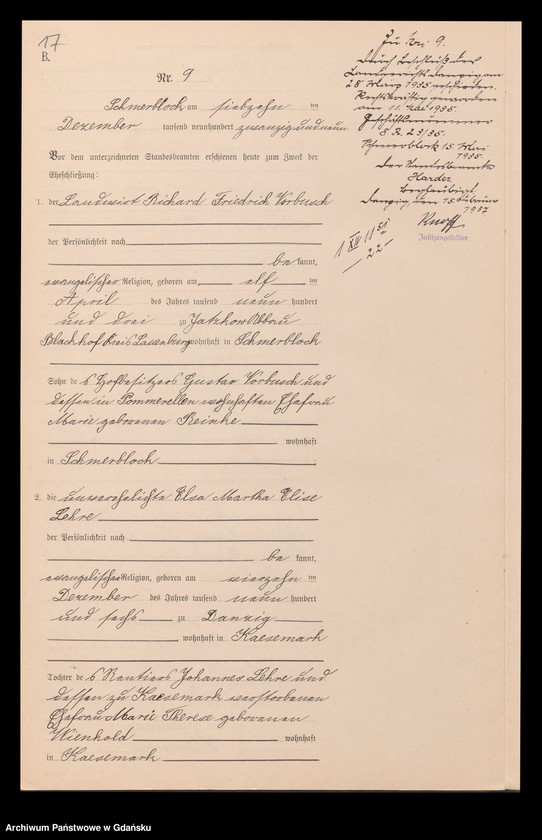 17
B.
Nr. 9
Schmerblock am siebzehn ten
Dezember tausend neunhundert zwanzig und neun
Vor dem unterzeichneten Standesbeamten erschienen heute zum Zweck der
Eheschließung:
1. der Landwirt Richard Friedrich Vorbusch
der Persönlichkeit nach
be kannt,
evangelischer Religion, geboren am elf ten
April des Jahres tausend neun hundert
und drei zu Jatzkow Abbau
Blachhof Kreis Lauenburg wohnhaft in Schmerblock
Sohn de s Hofbesitzers Gustav Vorbusch und
dessen in Pommerellen wohnhaften Ehefrau
Marie geborenen Reinke
wohnhaft
in Schmerblock
2. die unverehelichte Elsa Martha Elise
Lehre
der Persönlichkeit nach
be kannt,
evangelischer Religion, geboren am vierzehn ten
Dezember des Jahres tausend neun hundert
und sechs zu Danzig
wohnhaft in Kaesemark
Tochter de s Rentiers Johannes Lehre und
dessen zu Kaesemark verstorbenen
Ehefrau Marie Therese geborenen
Wienhold wohnhaft
in Kaesemark
Zu Nr. 9.
Durch Beschluß des
Landgerichts Danzig vom
28. März 1935 geschieden.
Rechtskräftig geworden
am 11. Mai 1935.
Geschäftsnummer
3. R. 23/35.
Schmerblock 15. Mai
1935.
Der Standesbeamte
Harder
Beglaubigt
Danzig, den 15. Februar
1937
Knoff
Justizangestellter
1 XII 11 31
22
Archiwum Państwowe w Gdańsku